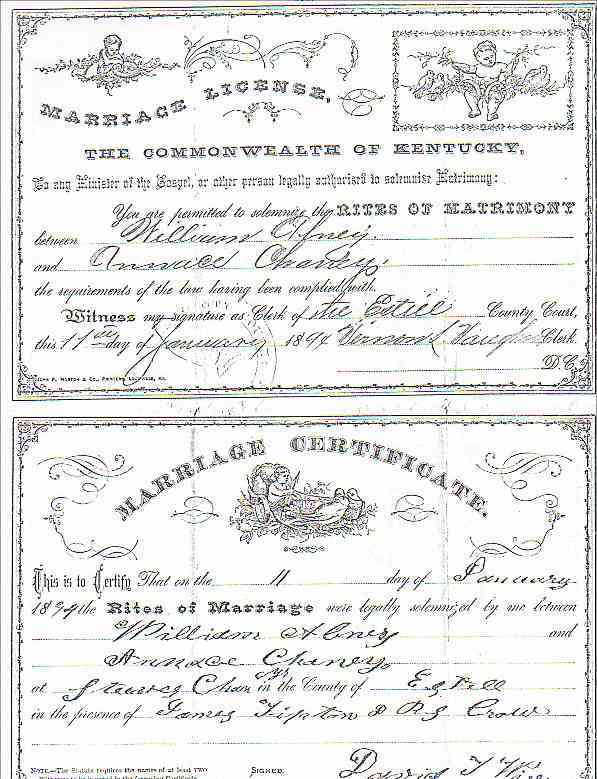 MARRIAGE LICENSE,
THE COMMONWEALTH OF KENTUCKY,
To any Minister of the Gospel, or other person legally authorised to solemnize Matrimony:
You are permitted to solemnize the RITES OF MATRIMONY
between William Abney.
and Annace Chaney,
the requirements of the law having been complied with.
Witness my signature as Clerk of the Estill County Court,
this 11th day of January 1894 Vermont Vaughn Clerk
D.C.
JOHN P. MORTON & CO., PRINTERS, LOUISVILLE, KY.
MARRIAGE CERTIFICATE.
This is to Certify That on the 11 day of January
1894 the Rites of Marriage were legally solemnized by me between
William Abney and
Annace Chaney,
at Chaneys in the County of Estill
in the presence of James Tipton & Crow
NOTE.—The Statute requires the names of at least TWO
SIGNED: David T